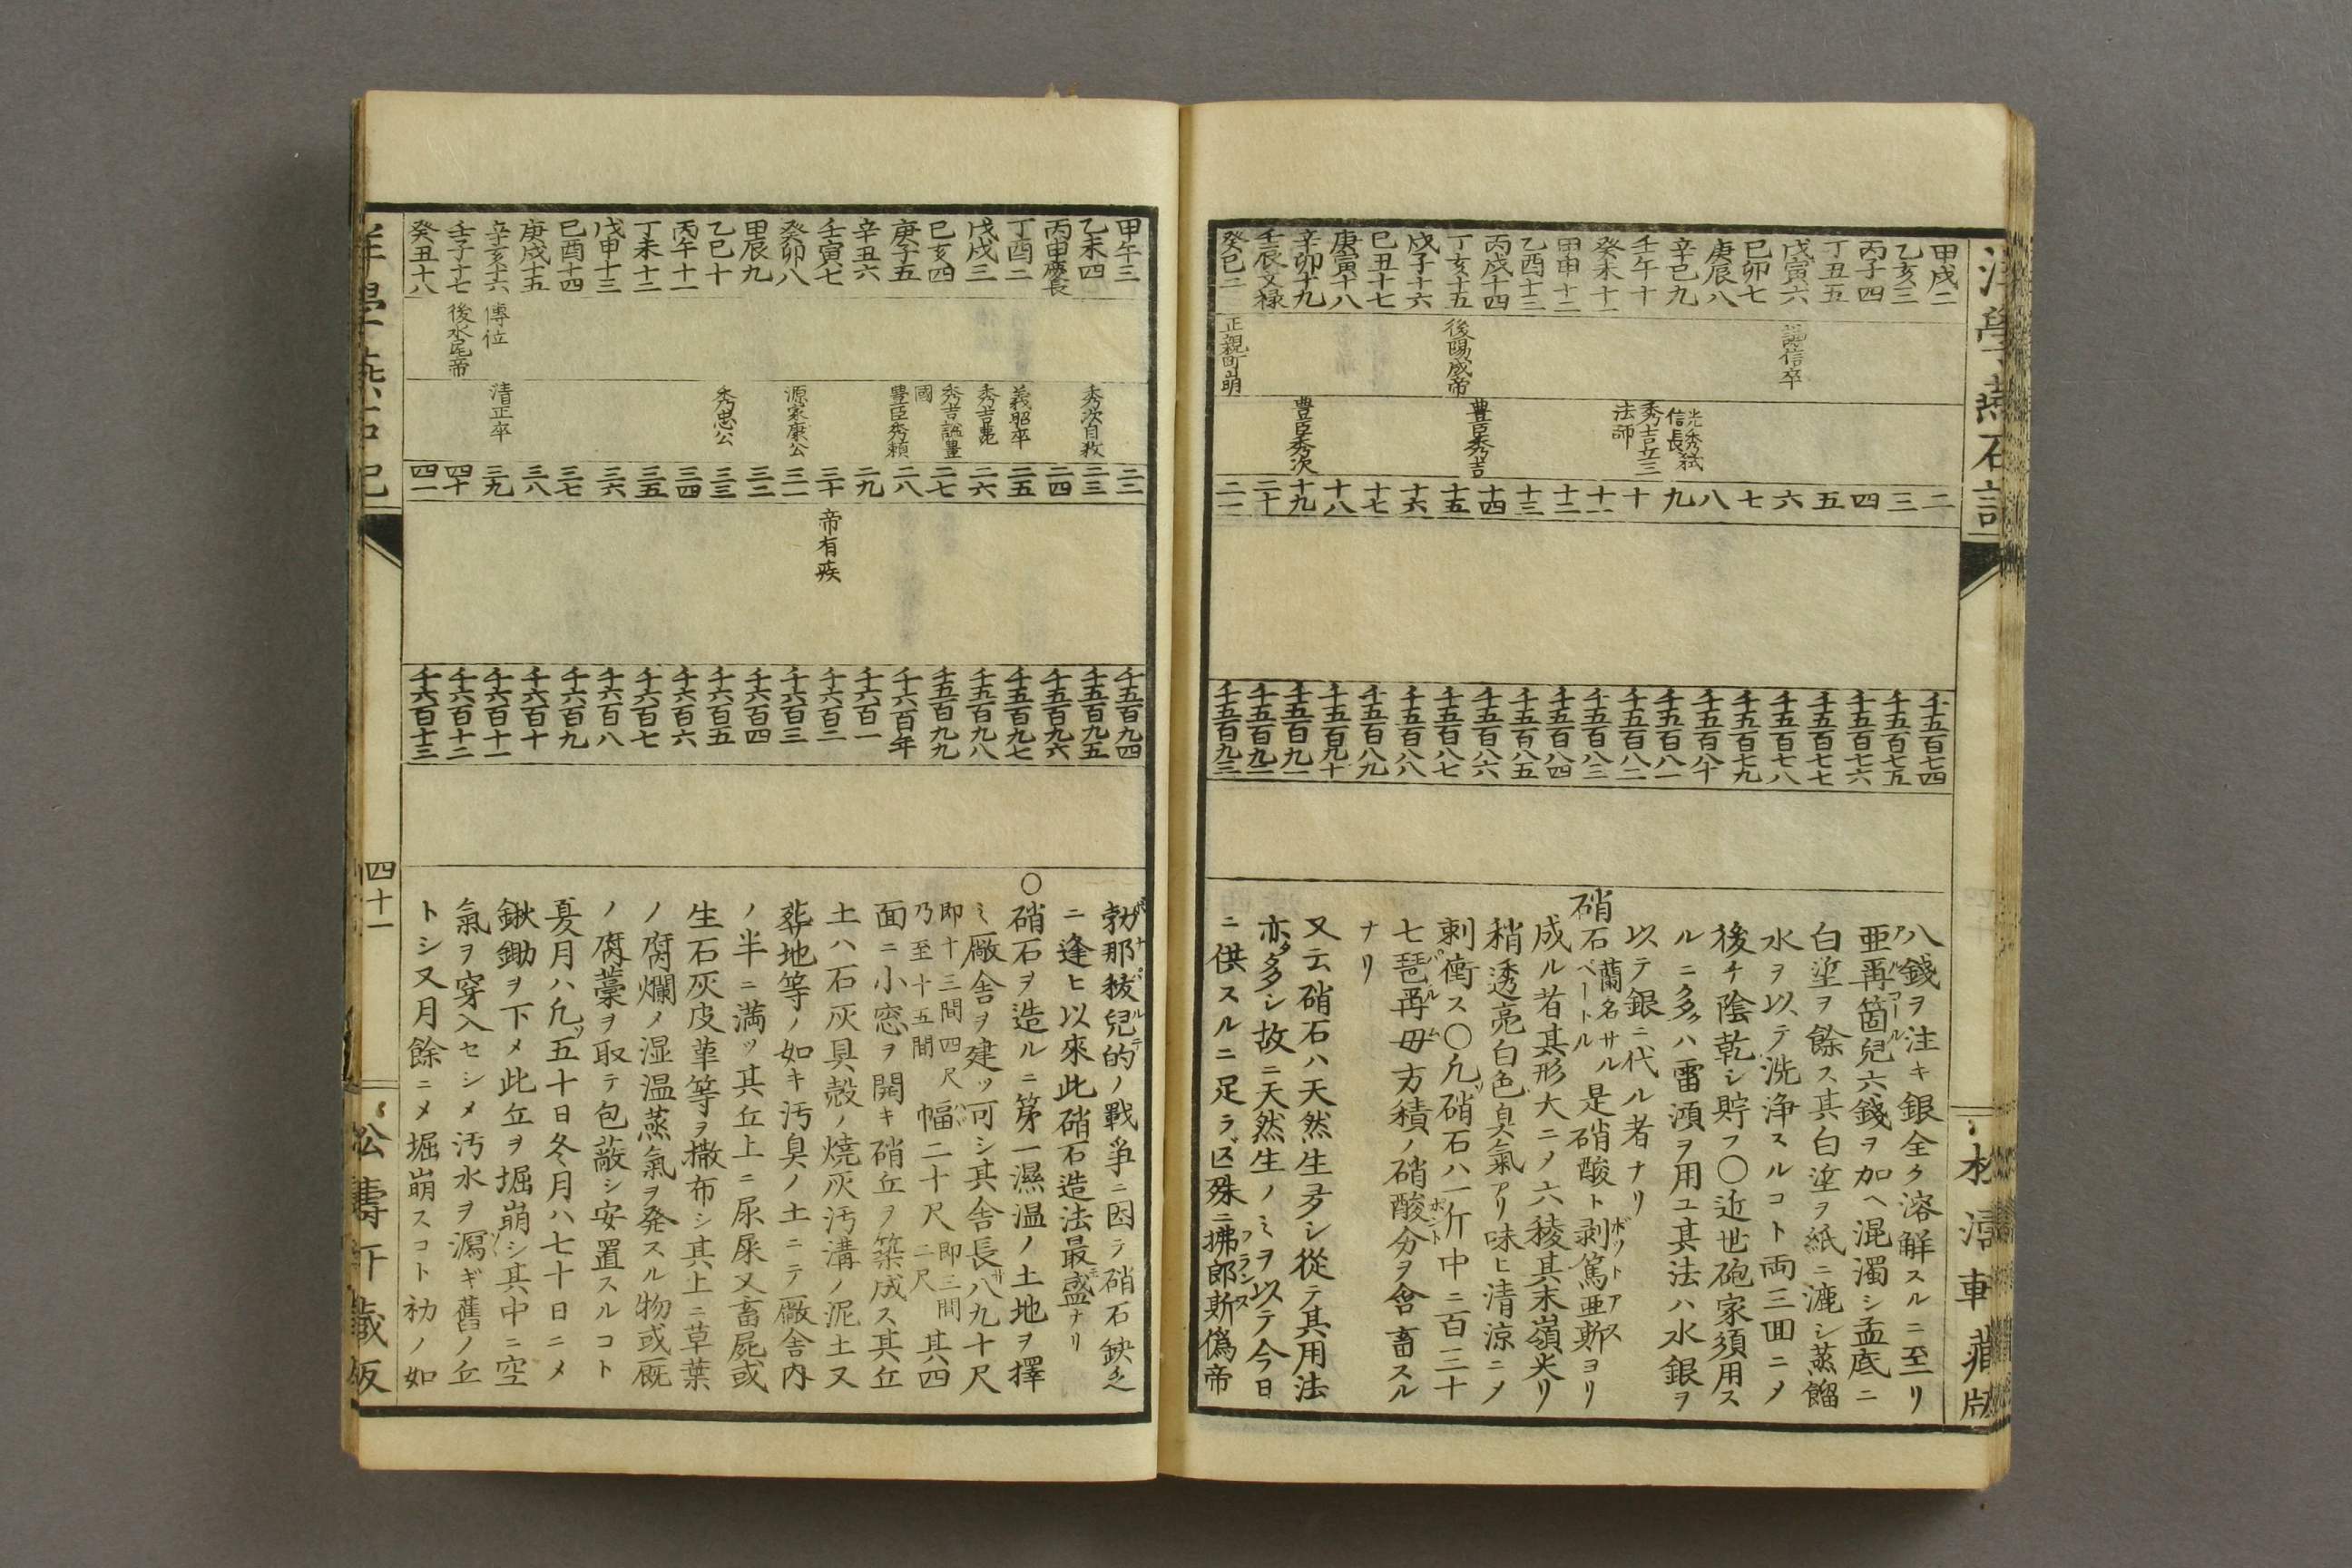 甲戌二
乙亥三
丙子四
丁丑五
戊寅六
己卯七
庚辰八
辛巳九
壬午十
癸未十一
甲申十二
乙酉十三
丙戌十四
丁亥十五
戊子十六
己丑十七
庚寅十八
辛卯十九
壬辰文禄
癸巳二
謙信卒
後陽成帝
正親町崩
光秀弑
信長
秀吉立三
法師
豊臣秀吉
豊臣秀次
二
三
四
五
六
七
八
九
十
十一
十二
十三
十四
十五
十六
十七
十八
十九
二十
二一
千五百七四
千五百七五
千五百七六
千五百七七
千五百七八
千五百七九
千五百八十
千五百八一
千五百八二
千五百八三
千五百八四
千五百八五
千五百八六
千五百八七
千五百八八
千五百八九
千五百九十
千五百九一
千五百九二
千五百九三
八錢ヲ注キ銀全ク溶解スルニ至リ
亜再箇兒六錢ヲ加ヘ混濁シ盂底ニ
白埿ヲ餘ス其白埿ヲ紙ニ漉シ蒸餾
水ヲ以テ洗浄スルコト両三回ニメ
後チ陰乾シ貯フ〇近世砲家須用ス
ルニ多クハ雷澒ヲ用ユ其法ハ水銀ヲ
以テ銀ニ代ル者ナリ
硝石蘭名サルペートル是硝酸ト剥篤亜斯ヨリ
成ル者其形大ニメ六稜其末嶺尖リ
稍透亮白色臭氣アリ味ヒ清涼ニメ
刺衝ス〇凢硝石ハ一斤中ニ百三十
七琶再毋方積ノ硝酸分ヲ含畜スル
ナリ
又云硝石ハ天然生多シ從テ其用法
亦タ多シ故ニ天然生ノミヲ以テ今日
ニ供スルニ足ラズ殊ニ拂郎斯僞帝
甲午三
乙未四
丙申慶長
丁酉二
戊戌三
己亥四
庚子五
辛丑六
壬寅七
癸卯八
甲辰九
乙巳十
丙午十一
丁未十二
戊申十三
己酉十四
庚戌十五
辛亥十六
壬子十七
癸丑十八
傳位
後水尾帝
秀次自殺
義昭卒
秀吉薨
秀吉謚豊
國
豊臣秀頼
源家康公
秀忠公
清正卒
二二
二三
二四
二五
二六
二七
二八
二九
三十
三一
三二
三三
三四
三五
三六
三七
三八
三九
四十
四一
帝有疾
千五百九四
千五百九五
千五百九六
千五百九七
千五百九八
千五百九九
千六百年
千六百一
千六百二
千六百三
千六百四
千六百五
千六百六
千六百七
千六百八
千六百九
千六百十
千六百十一
千六百十二
千六百十三
勃那拔兒的ノ戰爭ニ因テ硝石缺乏
ニ逢ヒ以來此硝石造法最盛ナリ
〇硝石ヲ造ルニ第一濕温ノ土地ヲ擇
ミ廠舎ヲ建ツ可シ其舎長サ八九十尺
即十三間四尺乃至十五間幅二十尺即三間二尺其四
面ニ小窓ヲ開キ硝丘ヲ築成ス其丘
土ハ石灰貝殻ノ燒灰汚溝ノ泥土又
葬地等ノ如キ汚臭ノ土ニテ廠舎内
ノ半ニ満ツ其丘上ニ尿屎又畜屍或
生石灰皮革等ヲ撒布シ其上ニ草葉
ノ腐爛メ湿温蒸氣ヲ発スル物或厩
ノ腐藁ヲ取テ包蔽シ安置スルコト
夏月ハ凢ソ五十日冬月ハ七十日ニメ
鍬鋤ヲ下メ此丘ヲ堀崩シ其中ニ空
氣ヲ穿入セシメ汚水ヲ瀉ギ舊ノ丘
トシ又月餘ニメ堀崩スコト初ノ如
四十一